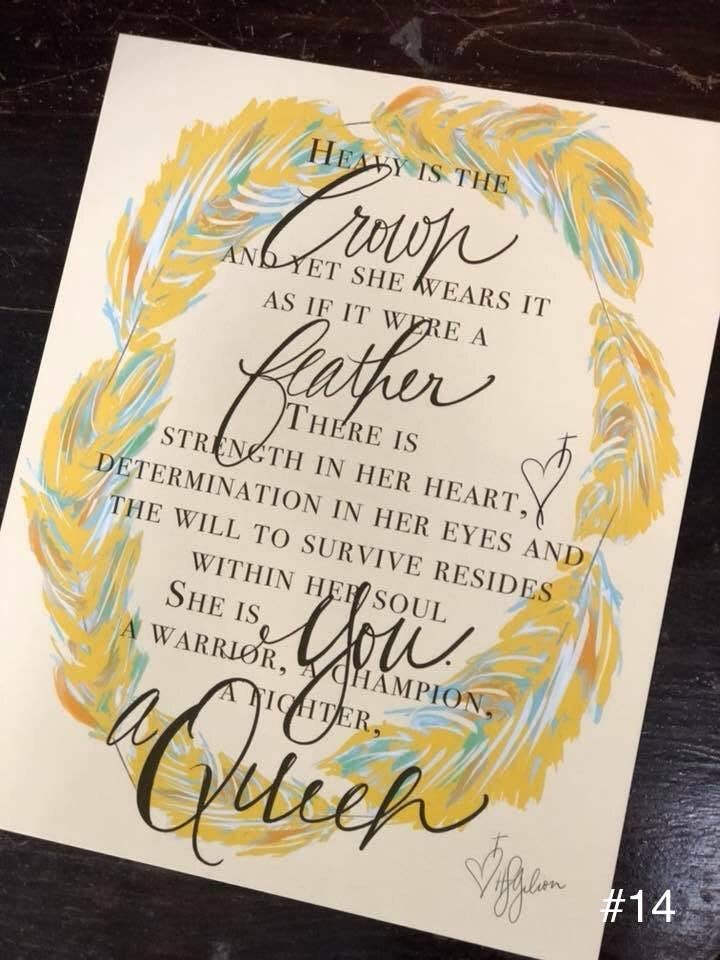 HEAVY IS THE
Crown
AND YET SHE WEARS IT
AS IF IT WERE A
feather
THERE IS
STRENGTH IN HER HEART,
DETERMINATION IN HER EYES AND
THE WILL TO SURVIVE RESIDES
WITHIN HER SOUL
SHE IS You.
A WARRIOR, A CHAMPION,
A FIGHTER,
a Queen
#14